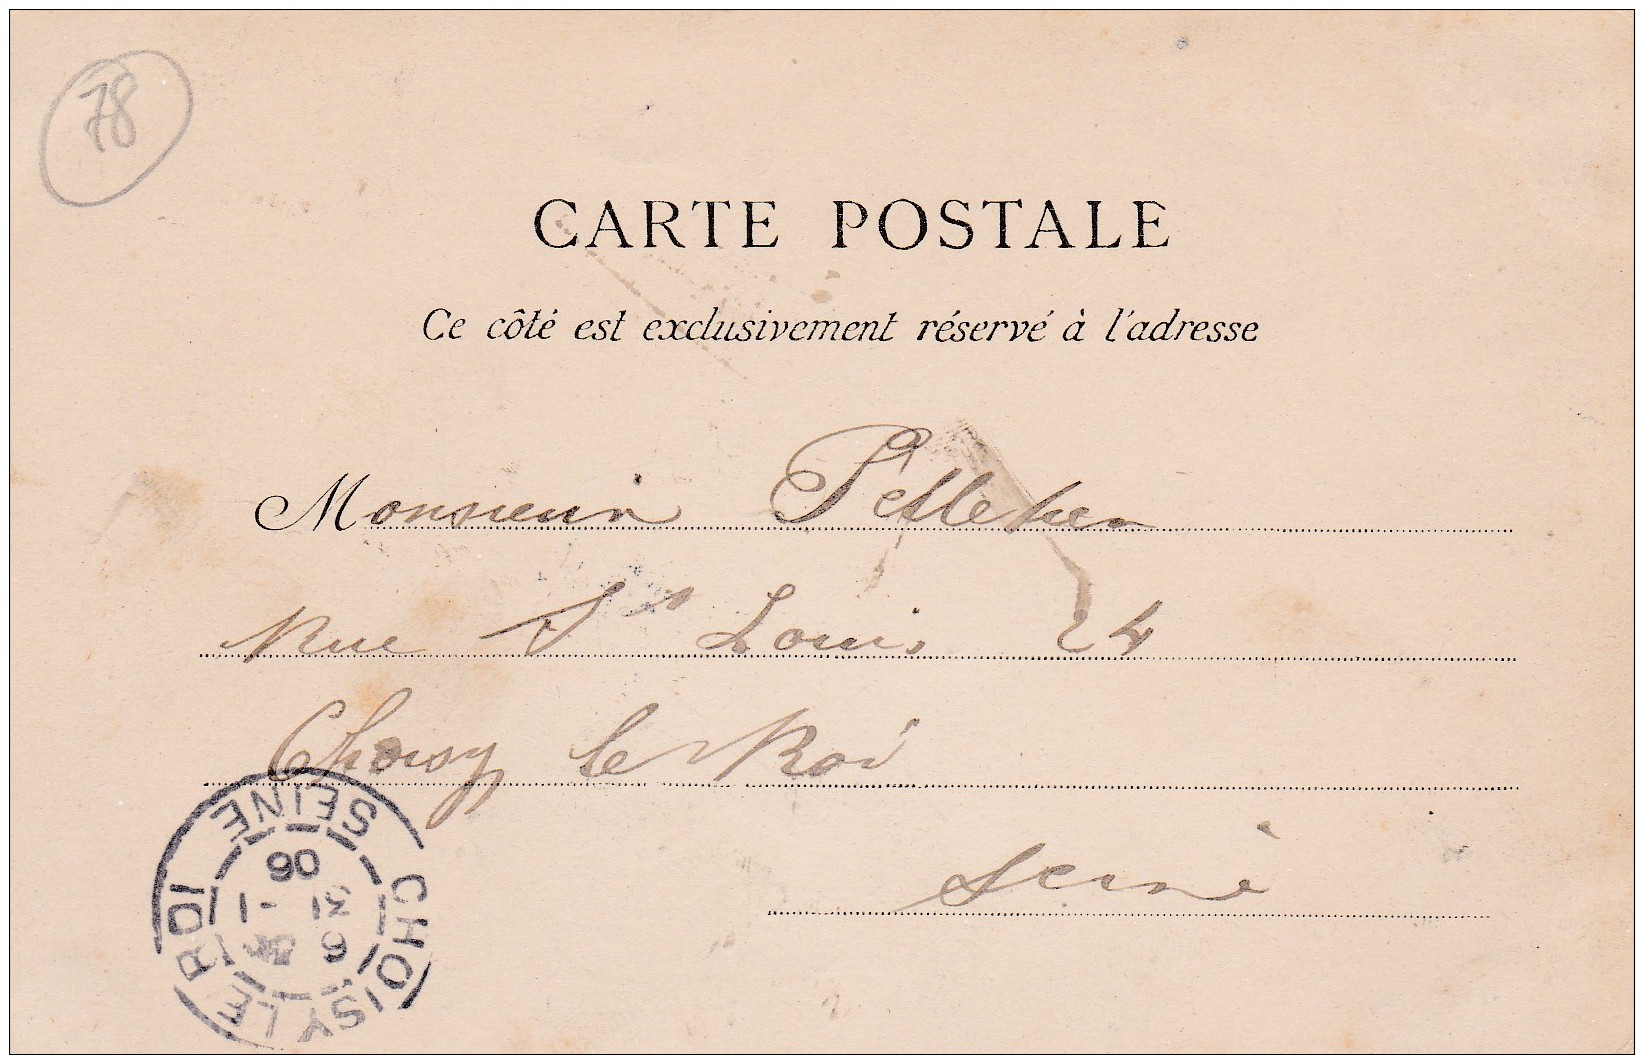 78
CARTE POSTALE
Ce côté est exclusivement réservé à l'adresse
Monsieur
Rue St Louis 24
Choisy le Roi
Seine
CHOISY LE ROI
SEINE
06